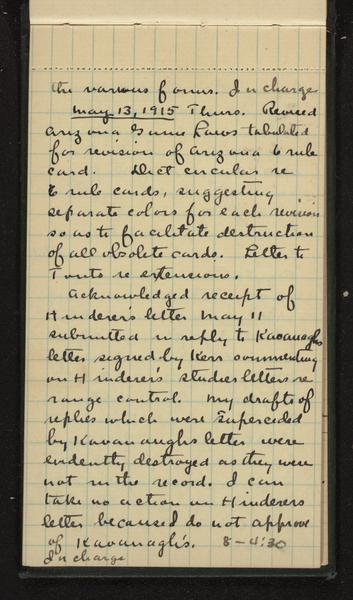 the various forms. In charge
May 13, 1915 Thurs. Revised
Arizona Game Laws tabulated
for revision of Arizona 6 rule
card. Dict circular re
6 rule cards, suggesting
separate colors for each revision
so as to facilitate destruction
of all obsolete cards. Letter to
Tonto re extensions.
Acknowledged receipt of
Hinderer's letter May 11
submitted in reply to Kavanaghs
letter signed by Kerr commenting
on Hinderer's studies letters re
range control. My drafts of
replies which were superceded
by Kavanaughs letter were
evidently destroyed as they were
not in the record. I can
take no action on Hinderers
letter because I do not approve
of Kavanagh's. 8-4:30
In charge